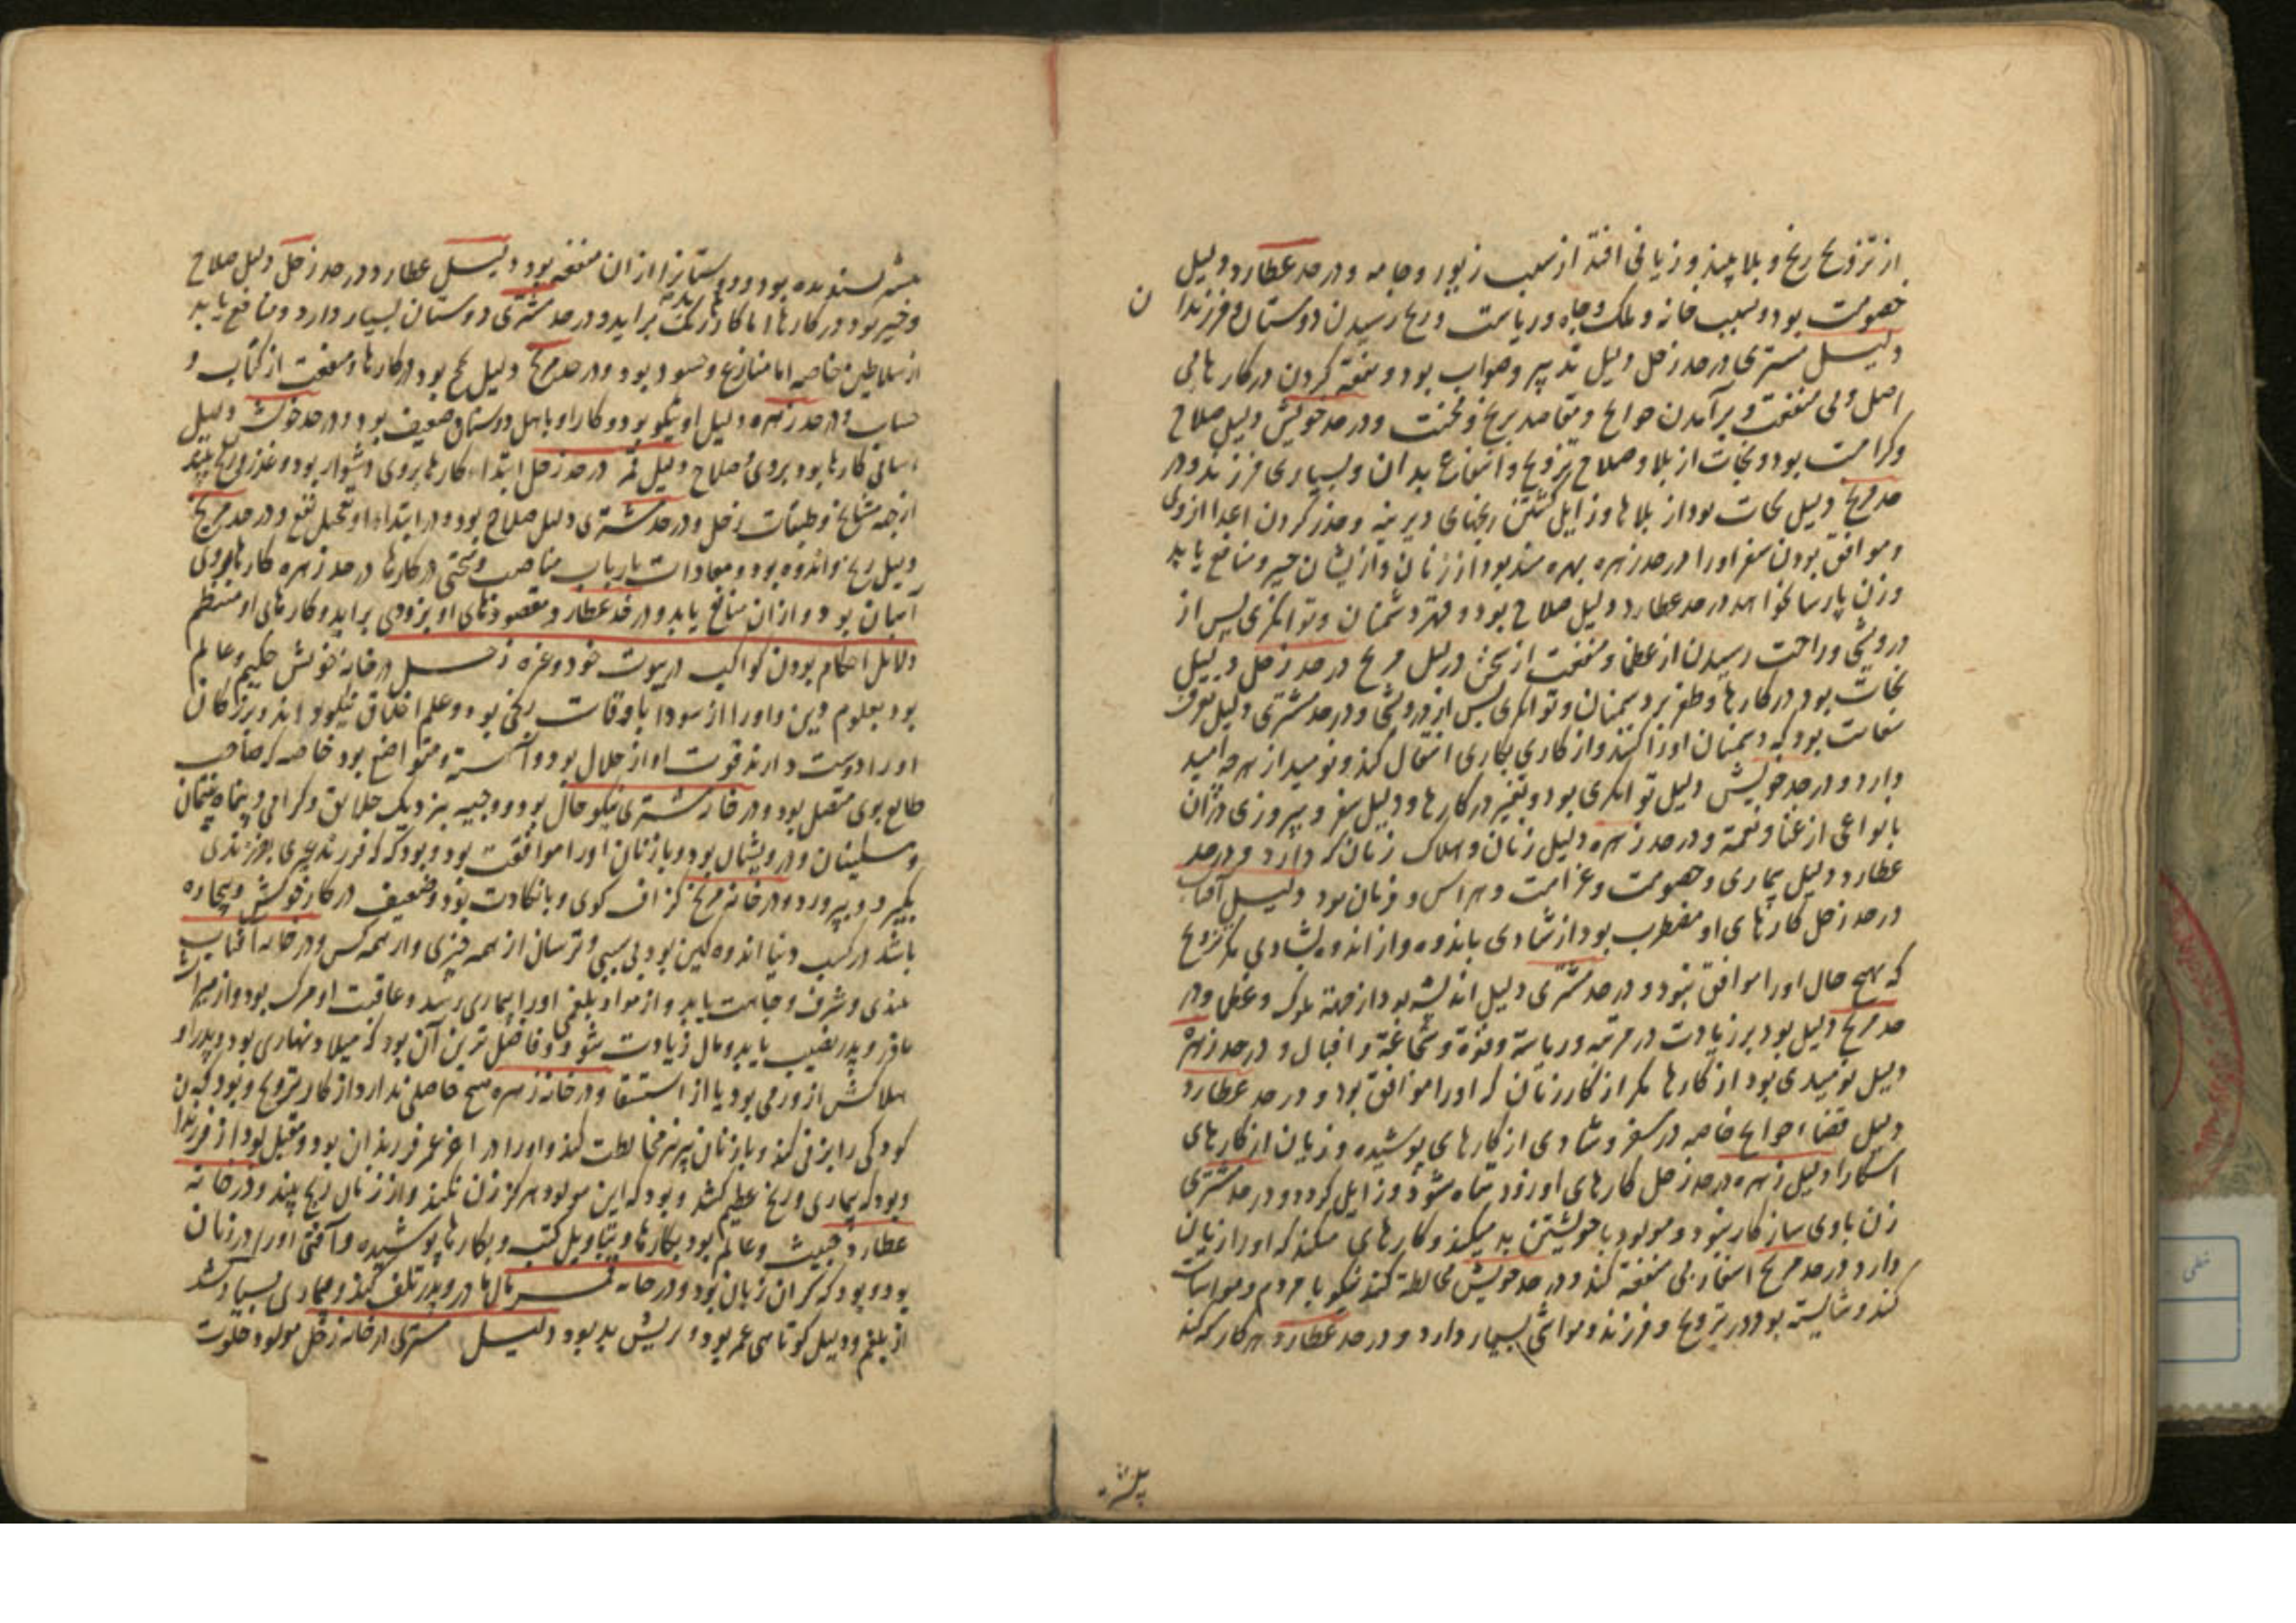 از تزویج رنج و بلا بیند و زیانی افتد از سبب زیور و جامه و در حد عطارد دلیل
خصومت بود و بسبب خانه و ملک و جاه و ریاست و رنج رسیدن دوستان و فرزندان
دلیل مشتری در حد زحل دلیل تدبیر و صواب بود و منفعة کردن در کارهای بی
اصل و بی منفعت و برآمدن حوایج و مقاصد برنج و محنت و در حد خویش دلیل صلاح
و کرامت بود و نجات از بلا و صلاح تزویج و انتفاع بدان و بسیاری فرزند و در
حد مریخ دلیل نجات بود از بلاها و زایل گشتن رنجهای دیرینه و حذر کردن اعدا از وی
و موافق بودن سفر او را در حد زهره بهره مند بود از زنان و از ایشان خیر و منافع یابد
و زن پارسا خواهد در حد عطارد دلیل صلاح بود و قهر دشمنان و توانگری پس از
درویشی و راحت رسیدن از عظما و منفعت از دلیل مریخ در حد زحل دلیل
نجات بود در کارها و ظفر بر دشمنان و توانگری پس از درویشی و در حد مشتری دلیل
بود که دشمنان او را و از کاری بکاری انتقال کند و نومید از هر چه امید
دارد و در حد خویش دلیل توانگری بود و تغییر در کارها و دلیل سفر و پیروزی در آن
بانواعی از غنا و نعمة و در حد زهره دلیل زنان و هلاک زنان که دارد و در حد
عطارد دلیل بیماری و خصومت و غرامت و هراس و دلیل آفتاب
در حد زحل کارهای او مضطرب بود از شادی باندوه و از اندوه بشادی مگر تزویج
که هیچ حال او را موافق نبود و در حد مشتری دلیل اندیشه بود از جهة ملوک و عظما و در
حد مریخ دلیل بود بر زیادت در مرتبه و ریاسة و قوة و شجاعة و اقبال و در حد زهره
دلیل نومیدی بود از کارها مگر از کار زنان که او را موافق بود و در حد عطارد
دلیل قضاء حوایج خاصه در سفر و شادی از کارهای پوشیده و زیان از کارهای
آشکارا دلیل زهره در حد زحل کارهای او زود تباه شود و زایل گردد و در حد مشتری
زن با وی سازگار نبود و مولود با خویشتن بد میکند و کارهای میکند که او را زیان
دارد و در حد مریخ اسفار بی منفعة کند و در حد خویش مخالطة کند نیکو با مردم و مواسات
کند و شایسته بود در تزویج و فرزند و مواشی بسیار دارد و در حد عطارد هر کار که کند
پسندیده بود و دوستانرا از آن منفعه بود دلیل عطارد در حد زحل دلیل صلاح
و خیر بود در کارها اما کارها بدرنگ برآید و در حد مشتری دوستان بسیار دارد و منافع یابد
از سلاطین خاصه اما منازع و حسود بود و در حد مریخ دلیل بود در کارها و منفعت از کتاب و
حساب و در حد زهره دلیل او نیکو بود و کار او با اهل و دوستان ضعیف بود و در حد خویش دلیل
آسانی کارها بود بر وی و صلاح دلیل قمر در حد زحل ابتداء کارها بر وی دشوار بود و رنج بیند
از جهة مشایخ و طبقات زحل و در حد مشتری دلیل صلاح بود در ابتداء او نفع و در حد مریخ
دلیل رنج و اندوه بود و معادات با ارباب مناصب و سختی در کارها در حد زهره کارها بر وی
آسان بود و از آن منافع یابد و در حد عطارد مقصودهای او بزودی برآید و کارهای او منتظم
دلائل احکام بودن کواکب در بیوت خود و غیره زحل در خانه خویش حکیم و عالم
بود بعلوم دین و او را از سودا باوقات رنجی بود و علم اخلاق نیکو داند و بزرگان
او را دوست دارند قوت او از حلال بود و آهسته و متواضع بود خاصه که صاحب
طالع بوی متصل بود و در خانه مشتری نیکو حال بود و وجیه بنزدیک خلایق و گرامی و پناه یتیمان
و مسکینان و درویشان بود و با زنان او را موافقت بود و بود که که فرزند غیری بفرزندی
بگیرد و بپرورد و در خانه مریخ گزاف گوی و بود و ضعیف در کار خویش و بیچاره
باشد در کسب دنیا اندوهگین بود بی سببی و ترسان از همه چیزی و از همه کس و در خانه آفتاب
بلندی و شرف و جاهت یابد و از مواد بلغمی او را بیماری رسد و عاقبت او مرگ بود و از میراث
مادر و پدر نصیب یابد و مال زیادت شود و فاضل ترین آن بود که میلاد نهاری بود و پدر او
هلاکش از ورمی بود یا از استسقا و در خانه زهره هیچ حاصلی ندارد از کار تزویج و بود که زن
کودکی را بزنی کند و با زنان پیر مخالطت کند و او را در آخر عمر فرزندان بود و مقبل بود از فرزندان
و بود که بیماری و رنج عظیم کشد و بود که این مولود هرگز زن نکند و از زنان رنج بیند و در خانه
عطارد خبیث و عالم بود بکارها و بتاویل کتب و بکارها پوشیده و آفتی او را در زنان
بود و بود که گران زبان بود و در خانه قمر مال مادر و پدر تلف کند و بیماری بسیار کشد
از بلغم و دلیل کوتاهی عمر بود و بریش بد بود دلیل مشتری در خانه زحل مولود خلوت